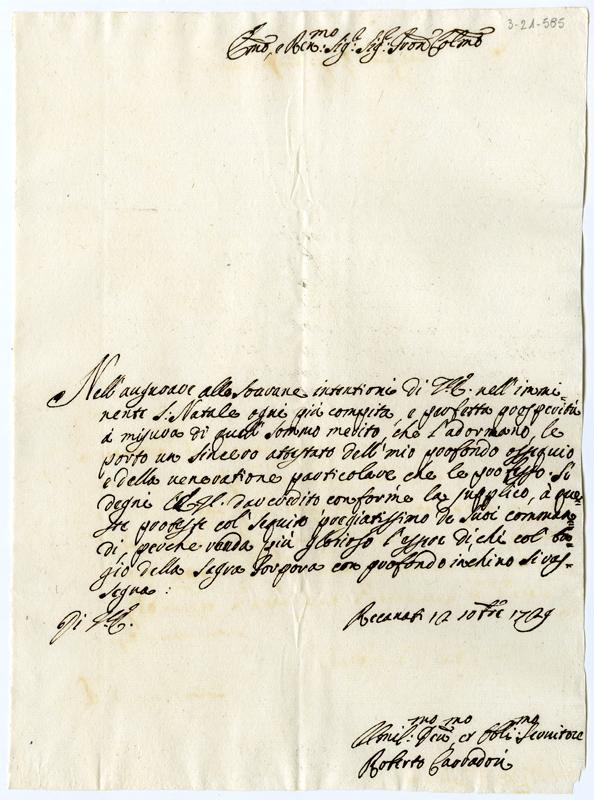 3-21-585
Em̃o, e Ren.mo Sig.r Sig.r Pron Colmo
Nell'augurare alle sovrane intentioni di V.E. nell'immi-
nente S. Natale ogni più compita, e perfetta prosperità
à misura di quell'sommo merito, che l'adornano, le
porto un sincero attestato dell'mio profondo ossequio
e della veneratione particolare che le professo. Si
degni dar credito conforme la supplico, à que-
ste proteste col' seguito pregiatissimo de suoi comman-
di, perche renda più glorioso l'essere di chi col' ba-
gio della Sagra Porpora con profondo inchino si ras-
segna:
Di V.E.
Recanati 12 10bre 1729
Umil.mo Dev.mo et Obli.mo Servitore
Roberto Carradori